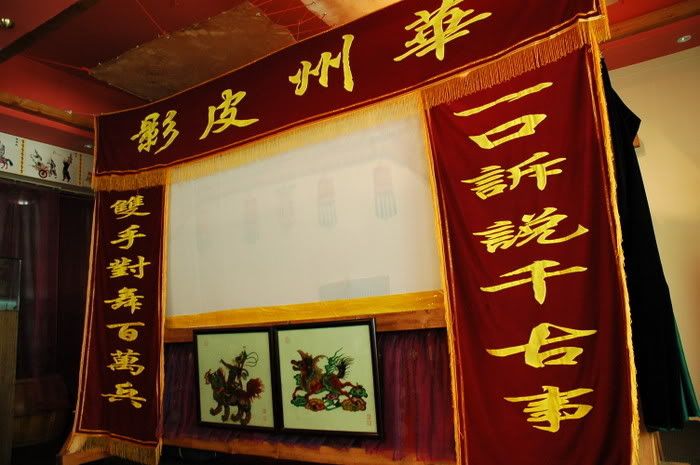 華州皮影
一口訴說千古事
雙手對舞百萬兵